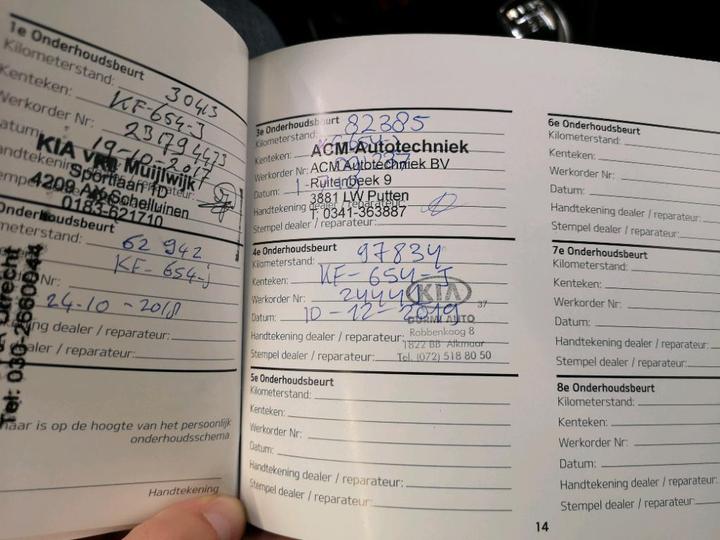 1e Onderhoudsbeurt
Kilometerstand: 30413
Kenteken: KF-654-J
Werkorder Nr: 231794423
19-10-2017
KIA vrij Muijlwijk
Sportlaan 1D
4209 AX Schelluinen
0183-621710
Onderhoudsbeurt
meterstand: 62 942
KF-654-j
24-10-2018
dealer / reparateur:
dealer / reparateur:
Utrecht
Tel: 030-2660044
naar is op de hoogte van het persoonlijk
onderhoudsschema
Handtekening
3e Onderhoudsbeurt
Kilometerstand: 82385
Kenteken:
Werkorder Nr:
Datum:
Handtekening dealer / reparateur:
Stempel dealer / reparateur:
ACM-Autotechniek
ACM Autotechniek BV
Ruitenbeek 9
3881 LW Putten
T: 0341-363887
4e Onderhoudsbeurt
Kilometerstand: 97834
Kenteken: KF-654-J
Werkorder Nr:
Datum: 10-12-2019
Handtekening dealer / reparateur:
Stempel dealer / reparateur:
KIA
37
AUTO
Robbenkoog 8
1822 BB Alkmaar
Tel. (072) 518 80 50
5e Onderhoudsbeurt
Kilometerstand:
Kenteken:
Werkorder Nr:
Datum:
Handtekening dealer / reparateur:
Stempel dealer / reparateur:
6e Onderhoudsbeurt
Kilometerstand:
Kenteken:
Werkorder Nr:
Datum:
Handtekening dealer / reparateur:
Stempel dealer / reparateur:
7e Onderhoudsbeurt
Kilometerstand:
Kenteken:
Werkorder Nr:
Datum:
Handtekening dealer / reparateur:
Stempel dealer / reparateur:
8e Onderhoudsbeurt
Kilometerstand:
Kenteken:
Werkorder Nr:
Datum:
Handtekening dealer / reparateur:
Stempel dealer / reparateur:
14